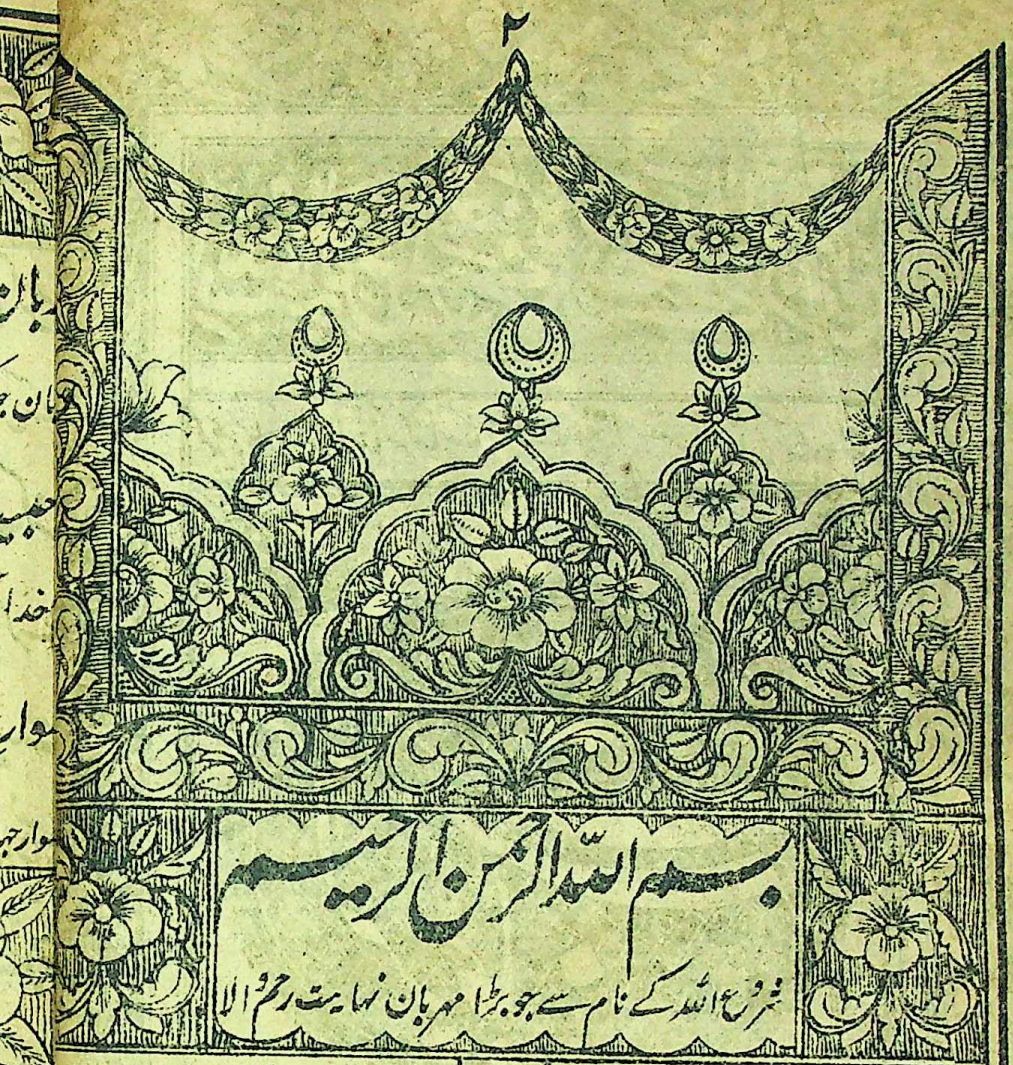 ۲
بسم اللہ الرحمن الرحیم
شروع اللہ کے نام سے جو بڑا مہربان نہایت رحم والا